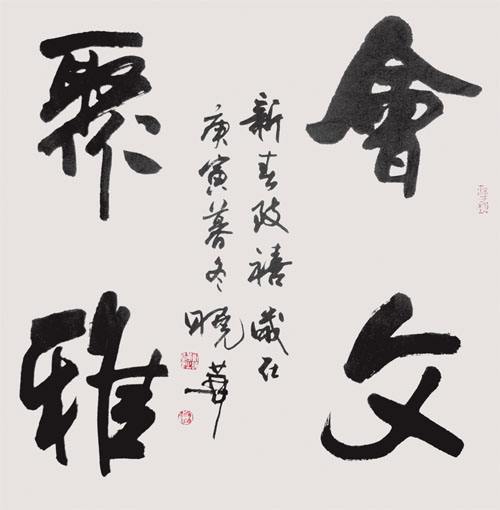 會文
聚雅
新春致禧歲在
庚寅暮冬曉華